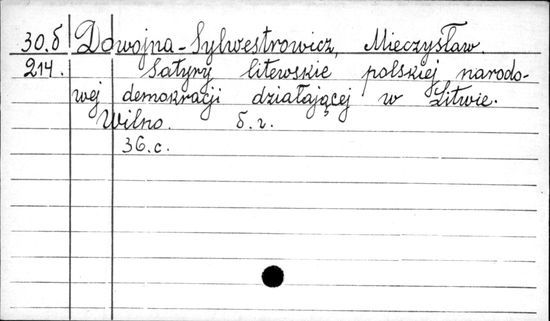 30.б Dowojna-Sylwestrowicz, Mieczysław.
214. Satyry litewskie polskiej narodo-
wej demokracji działającej w Litwie.
Wilno. б.г.
36.с.